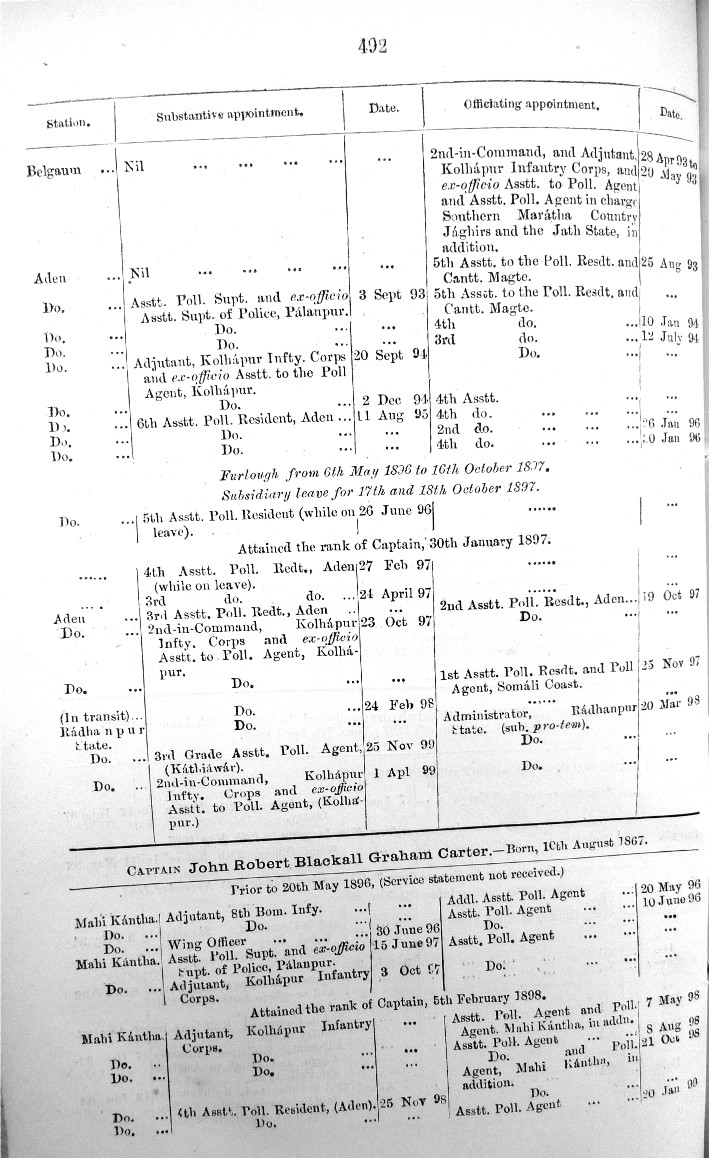 492
Station. Substantive appointment. Date. Officiating appointment. Date.
Belgaum ... Nil ... ... ... ... ... 2nd-in-Command, and Adjutant, 28 Apr 93 to
Kolhápur Infantry Corps, and 29 May 93
ex-officio Asstt. to Poll. Agent
and Asstt. Poll. Agent in charge
Southern Marátha Country
Jághirs and the Jath State, in
addition.
Aden ... Nil ... ... ... ... ... 5th Asstt. to the Poll. Resdt. and 25 Aug 93
Cantt. Magte.
Do. ... Asstt. Poll. Supt. and ex-officio 3 Sept 93 5th Asstt. to the Poll. Resdt. and ...
Asstt. Supt. of Police, Pálanpur. Cantt. Magte.
Do. ... Do. ... ... 4th do. ... 10 Jan 94
Do. ... Do. ... ... 3rd do. ... 12 July 94
Do. ... Adjutant, Kolhápur Infty. Corps 20 Sept 94 Do. ... ...
and ex-officio Asstt. to the Poll
Agent, Kolhápur.
Do. ... Do. ... 2 Dec 94 4th Asstt. ... ...
Do. ... 6th Asstt. Poll. Resident, Aden ... 11 Aug 95 4th do. ... ... ... ...
Do. ... Do. ... ... 2nd do. ... ... ... 26 Jan 96
Do. ... Do. ... ... 4th do. ... ... ... 30 Jan 96
Furlough from 6th May 1896 to 16th October 1897.
Subsidiary leave for 17th and 18th October 1897.
Do. ... 5th Asstt. Poll. Resident (while on 26 June 96 ...... ...
leave).
Attained the rank of Captain, 30th January 1897.
...... 4th Asstt. Poll. Redt., Aden 27 Feb 97 ...... ...
(while on leave).
.... 3rd do. do. ... 24 April 97 ...... ...
Aden ... 3rd Asstt. Poll. Redt., Aden .. ... 2nd Asstt. Poll. Resdt., Aden... 19 Oct 97
Do. ... 2nd-in-Command, Kolhápur 23 Oct 97 Do. ... ...
Infty. Corps and ex-officio
Asstt. to Poll. Agent, Kolhá-
pur.
Do. ... Do. ... ... 1st Asstt. Poll. Resdt. and Poll 25 Nov 97
Agent, Somáli Coast.
(In transit)... Do. ... 24 Feb 98 ...... ...
Rádhanpur Do. ... ... Administrator, Rádhanpur 20 Mar 98
State. State. (sub. pro-tem).
Do. ... 3rd Grade Asstt. Poll. Agent, 25 Nov 99 Do. ... ...
(Káthiáwár).
Do. .. 2nd-in-Command, Kolhápur 1 Apl 99 Do. ... ...
Infty. Crops and ex-officio
Asstt. to Poll. Agent, (Kolhá-
pur.)
CAPTAIN John Robert Blackall Graham Carter.—Born, 10th August 1867.
Prior to 20th May 1896, (Service statement not received.)
Mahi Kántha. Adjutant, 8th Bom. Infy. ... ... Addl. Asstt. Poll. Agent ... 20 May 96
Do. ... Do. ... ... Asstt. Poll. Agent ... ... 10 June 96
Do. ... Wing Officer ... ... ... 30 June 96 Do. ... ... ...
Mahi Kántha. Asstt. Poll. Supt. and ex-officio 15 June 97 Asstt. Poll. Agent ... ... ...
Supt. of Police, Pálanpur.
Do. ... Adjutant, Kolhápur Infantry 3 Oct 97 Do. ... ... ...
Corps.
Attained the rank of Captain, 5th February 1898.
Mahi Kántha. Adjutant, Kolhápur Infantry ... Asstt. Poll. Agent and Poll. 7 May 98
Corps. Agent. Mahi Kántha, in addn.
Do. .. Do. ... ... Asstt. Poll. Agent ... ... 8 Aug 98
Do. ... Do. ... ... Do. and Poll. 21 Oct 98
Agent, Mahi Kántha, in
addition.
Do. ... 4th Asstt. Poll. Resident, (Aden). 25 Nov 98 Do. ... ...
Do. ... Do. ... ... Asstt. Poll. Agent ... ... 20 Jan 99